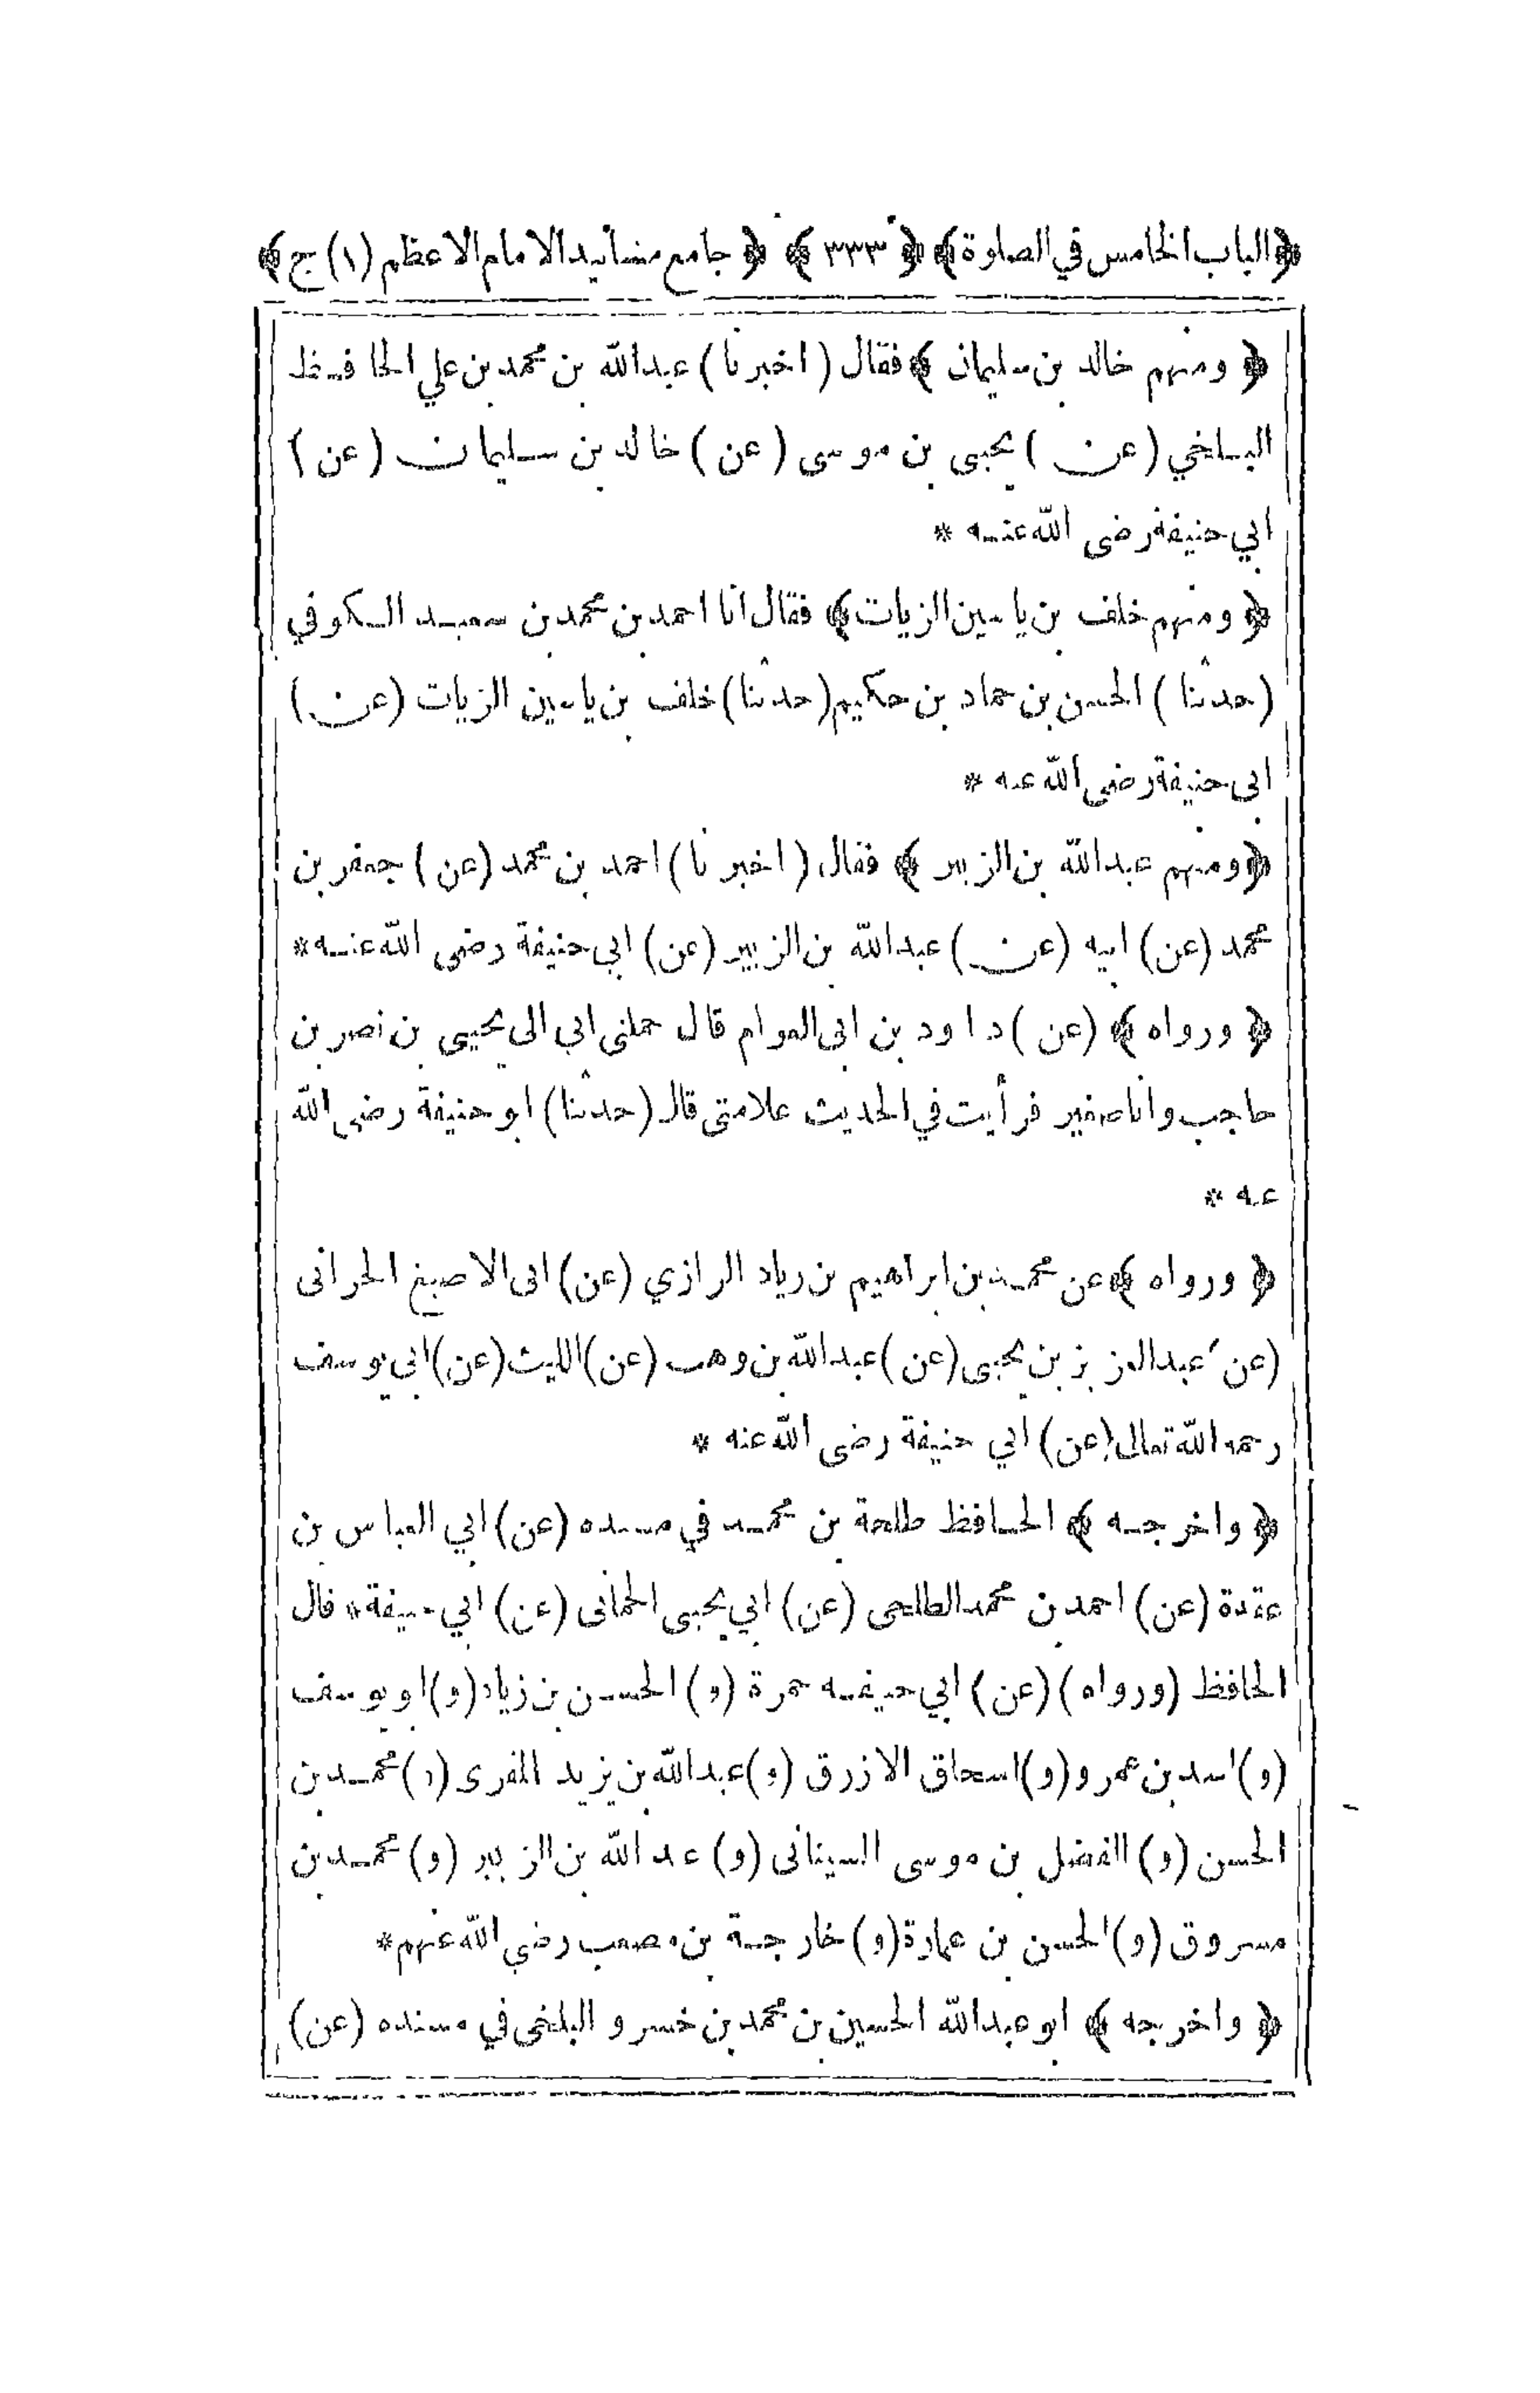 ﴿الباب الخامس في الصلوة﴾ ﴿٣٣٣﴾ ﴿جامع مسانيد الامام الاعظم (١) ج﴾
﴿ ومنهم خالد بن سليمان ﴾ فقال ( اخبرنا ) عبدالله بن محمد بن علي الحافظ
البلخي ( عن ) يحيى بن موسى ( عن ) خالد بن سليمان ( عن )
ابي حنيفة رضى الله عنه *
﴿ ومنهم خلف بن ياسين الزيات ﴾ فقال انا احمد بن محمد بن سعيد الكوفي
( حدثنا ) الحسن بن حماد بن حكيم ( حدثنا ) خلف بن ياسين الزيات ( عن )
ابى حنيفة رضى الله عنه *
﴿ ومنهم عبدالله بن الزبير ﴾ فقال ( اخبرنا ) احمد بن محمد ( عن ) جعفر بن
محمد ( عن ) ابيه ( عن ) عبدالله بن الزبير ( عن ) ابي حنيفة رضى الله عنه *
﴿ ورواه ﴾ ( عن ) داود بن ابى العوام قال حملنى ابي الى يحيى بن نصر بن
حاجب وانا صغير فرأيت في الحديث علامتى قال ( حدثنا ) ابو حنيفة رضى الله
عنه *
﴿ ورواه ﴾ عن محمد بن ابراهيم بن زياد الرازي ( عن ) ابى الاصبغ الحرانى
( عن ) عبدالعزيز بن يحيى ( عن ) عبدالله بن وهب ( عن ) الليث ( عن ) ابى يوسف
رحمه الله تعالى ( عن ) ابي حنيفة رضى الله عنه *
﴿ واخرجه ﴾ الحافظ طلحة بن محمد في مسنده ( عن ) ابي العباس بن
عقدة ( عن ) احمد بن محمد الطلحى ( عن ) ابي يحيى الحمانى ( عن ) ابي حنيفة * قال
الحافظ ( ورواه ) ( عن ) ابي حنيفه حمزة ( و ) الحسن بن زياد ( و ) ابو يوسف
( و ) اسد بن عمرو ( و ) اسحاق الازرق ( و ) عبدالله بن يزيد المقرى ( و ) محمد بن
الحسن ( و ) الفضل بن موسى السينانى ( و ) عبدالله بن الزبير ( و ) محمد بن
مسروق ( و ) الحسن بن عمارة ( و ) خارجة بن مصعب رضي الله عنهم *
﴿ واخرجه ﴾ ابو عبدالله الحسين بن محمد بن خسرو البلخى في مسنده ( عن )